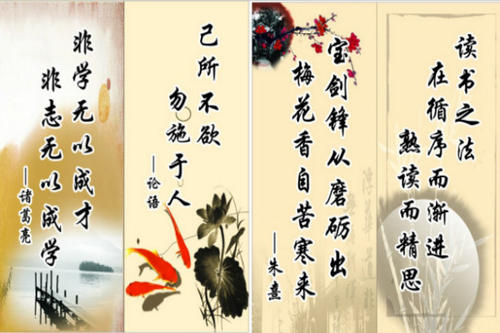 非学无以成才
非志无以成学
—诸葛亮
己所不欲
勿施于人
—论语
宝剑锋从磨砺出
梅花香自苦寒来
—朱熹
读书之法
在循序而渐进
熟读而精思